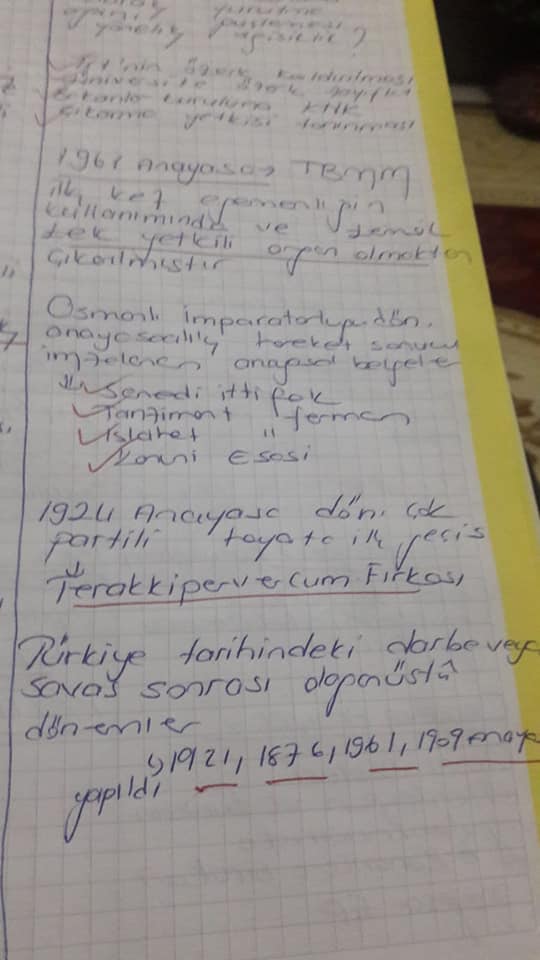 yürütme
?
TRT'nin özerk kaldırılması
üniversite özerk
kuruluna KHK
çıkarma yetkisi tanınması
1961 Anayasa → TBMM
ilk kez egemenliğin
kullanımında ve temsil
tek yetkili organ olmaktan
çıkarılmıştır
Osmanlı imparatorluğu dön.
anayasacılık hareket sonucu
imzalanan anayasal belgeler
⇓ ✓Senedi ittifak
✓Tanzimat fermanı
✓Islahat "
✓Kanuni Esasi
1924 Anayasa dön. çok
partili hayata ilk geçiş
↓
Terakkiperver Cum Fırkası
Türkiye tarihindeki darbe veya
savaş sonrası olağanüstü
dönemler
↳ 1921, 1876, 1961, 1909 anaya
yapıldı